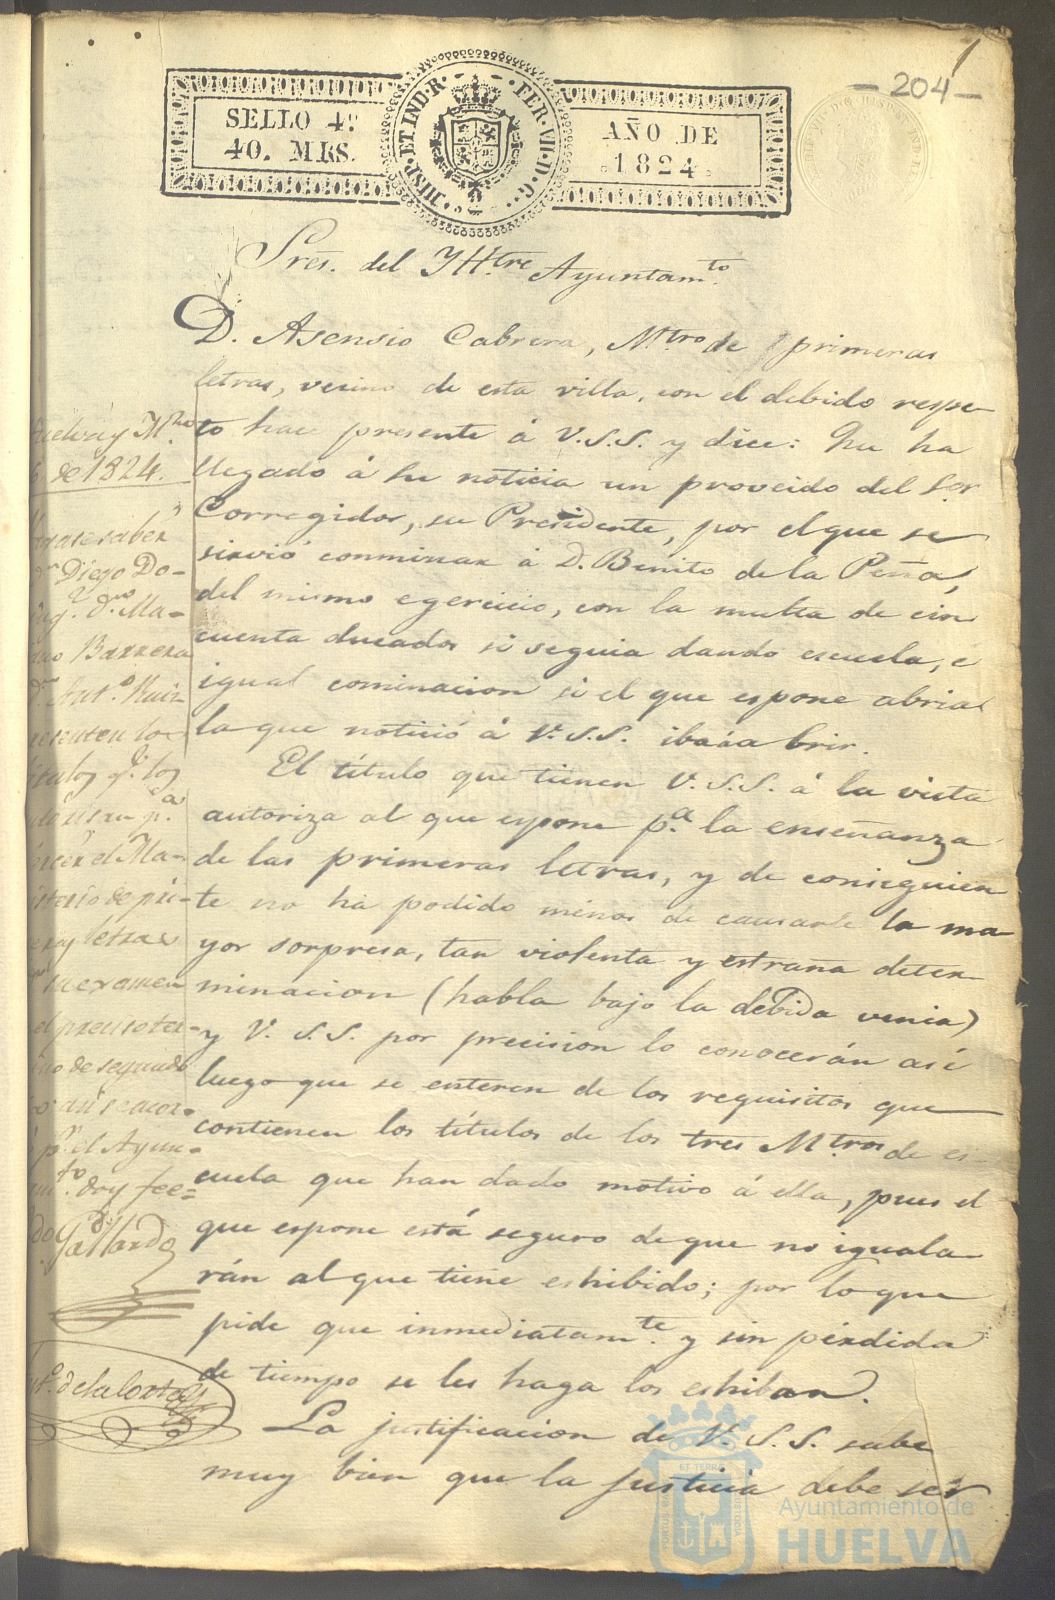 1
- 204 -
SELLO 4º
40. MRS.
HISP. ET IND. R. FER. VII. D. G.
AÑO DE
1824
Sres. del Yll.tre Ayuntam.to
D. Asensio Cabrera, M.tro de primeras
letras, vecino de esta villa, con el debido respe-
to hace presente á V.S.S. y dice: Que ha
llegado á su noticia un proveido del S.or
Corregidor, su Presidente, por el que se
sirvió conminar á D. Benito de la Peña,
del mismo egercicio, con la multa de cin
cuenta ducados si seguia dando escuela, é
igual cominacion si el que espone abria
la que notició á V.S.S. iba á abrir.
El título que tienen V.S.S. á la vista
autoriza al que espone p.a la enseñanza
de las primeras letras, y de consiguien
te no ha podido menos de causarle la ma
yor sorpresa, tan violenta y estraña deter
minacion (habla bajo la debida venia)
y V.S.S. por precision lo conocerán así
luego que se enteren de los requisitos que
contienen los títulos de los tres M.tros de es-
cuela que han dado motivo á ella, pues el
que espone está seguro de que no iguala-
rán al que tiene eshibido; por lo que
pide que inmediatam.te y sin pérdida
de tiempo se les haga los eshiban.
La justificacion de V.S.S. sabe
muy bien que la justicia debe ser
de 1824.
Diego Do-
Ma-
Barrera
Ant.o Ruiz
presenten los
titulos q.e los
p.a
el Ma-
de pri-
letras
su examen
el preciso ter-
de segundo
p.r el Ayun-
doy fee=
Gallardo
de la Corta
Ayuntamiento de
HUELVA